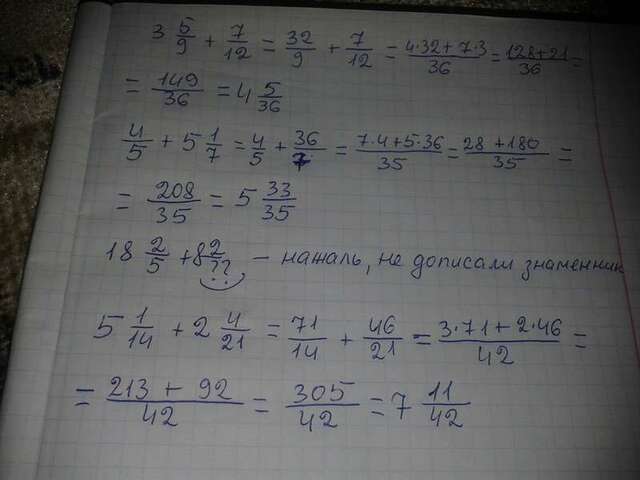 3 5/9 + 7/12 = 32/9 + 7/12 = 4·32+7·3/36 = 128+21/36 =
= 149/36 = 4 5/36
4/5 + 5 1/7 = 4/5 + 36/7 = 7·4+5·36/35 = 28+180/35 =
= 208/35 = 5 33/35
18 2/5 + 8 2/?? – нажаль, не дописали знаменник
5 1/14 + 2 4/21 = 71/14 + 46/21 = 3·71+2·46/42 =
= 213+92/42 = 305/42 = 7 11/42